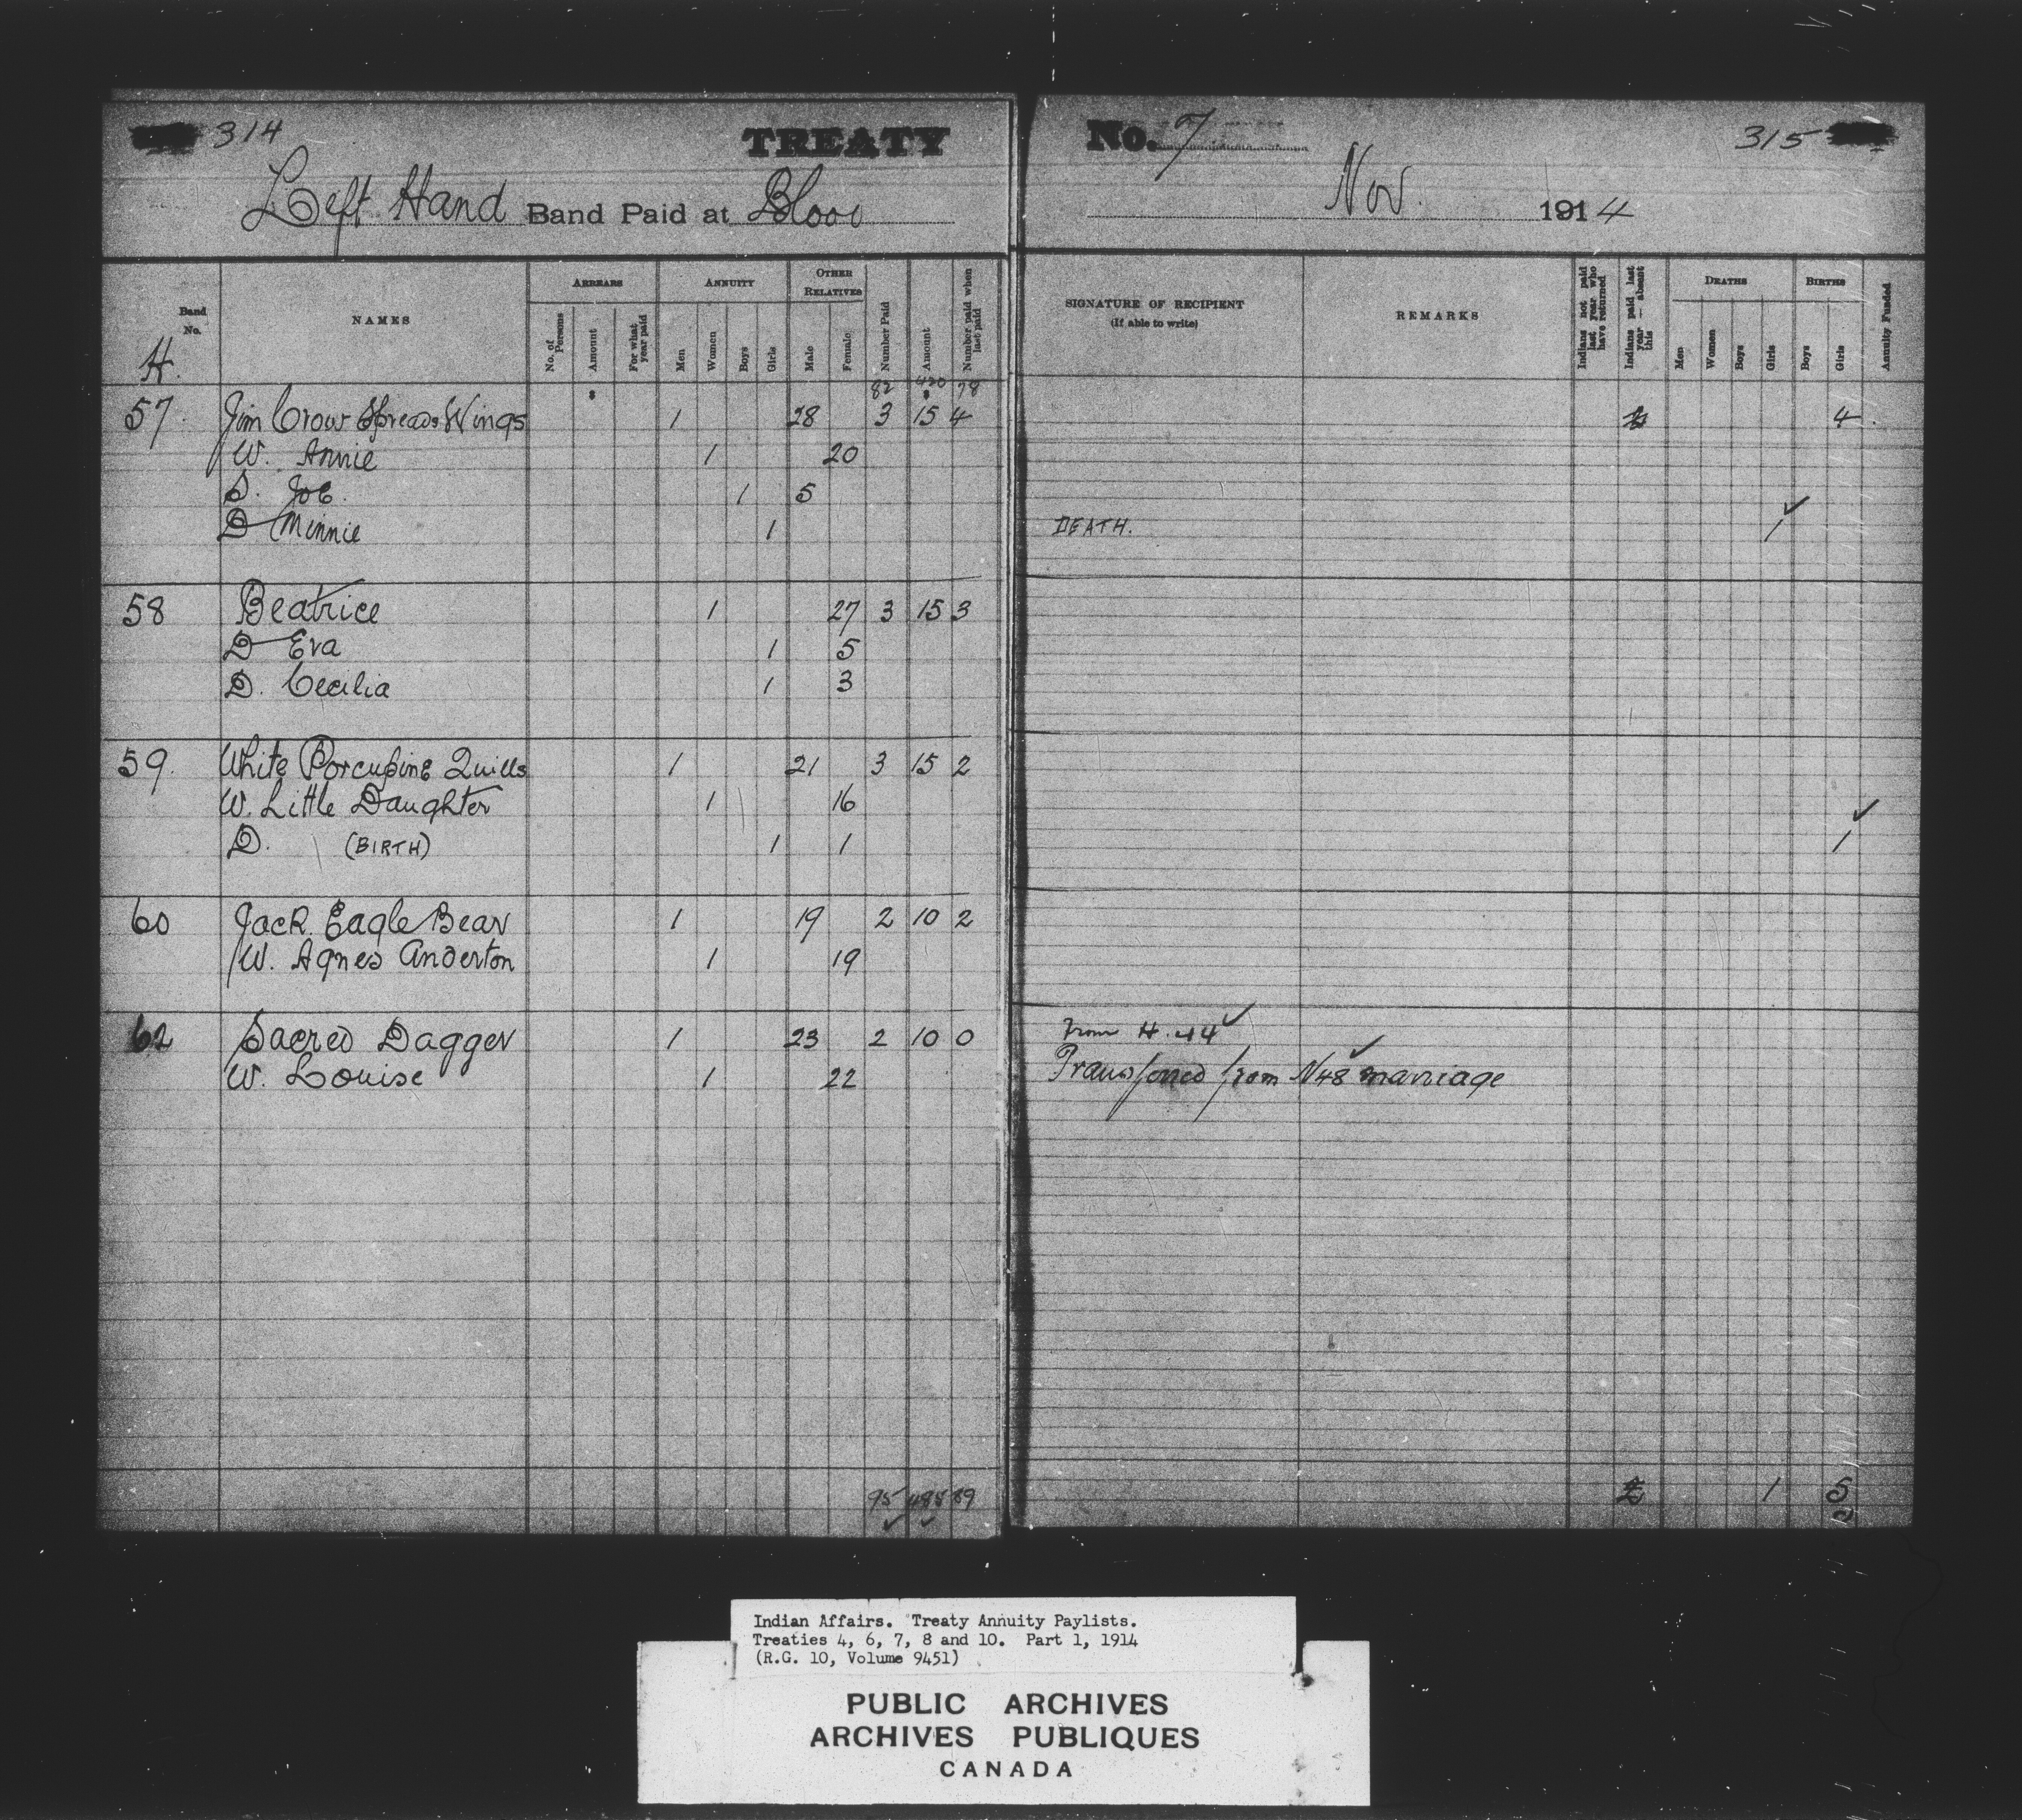 314 TREATY
Left Hand Band Paid at Blood
No. 7 315
Nov. 1914
Band No. NAMES ARREARS ANNUITY OTHER RELATIVES Number Paid Amount Number paid when last paid
No. of Persons Amount For what year paid Men Women Boys Girls Male Female
SIGNATURE OF RECIPIENT (If able to write) REMARKS Indians not paid last year who have returned Indians paid last year — absent this DEATHS BIRTHS Annuity Funded
Men Women Boys Girls Boys Girls
H.
$ 82 420 78
57 Jim Crow Spreads Wings 1 28 3 15 4 4
W. Annie 1 20
S. Joe. 1 5
D Minnie 1 DEATH. 1 ✓
58 Beatrice 1 27 3 15 3
D Eva 1 5
D. Cecilia 1 3
59. White Porcupine Quills 1 21 3 15 2
W. Little Daughter 1 16
D. (BIRTH) 1 1 1 ✓
60 Jack Eagle Bear 1 19 2 10 2
W. Agnes Anderton 1 19
62 Sacred Dagger 1 23 2 10 0 From H. 44 ✓
W. Louise 1 22 Transferred from N48 ✓ marriage
95 485 89 1 5
✓ ✓
Indian Affairs. Treaty Annuity Paylists.
Treaties 4, 6, 7, 8 and 10. Part 1, 1914
(R.G. 10, Volume 9451)
PUBLIC ARCHIVES
ARCHIVES PUBLIQUES
CANADA